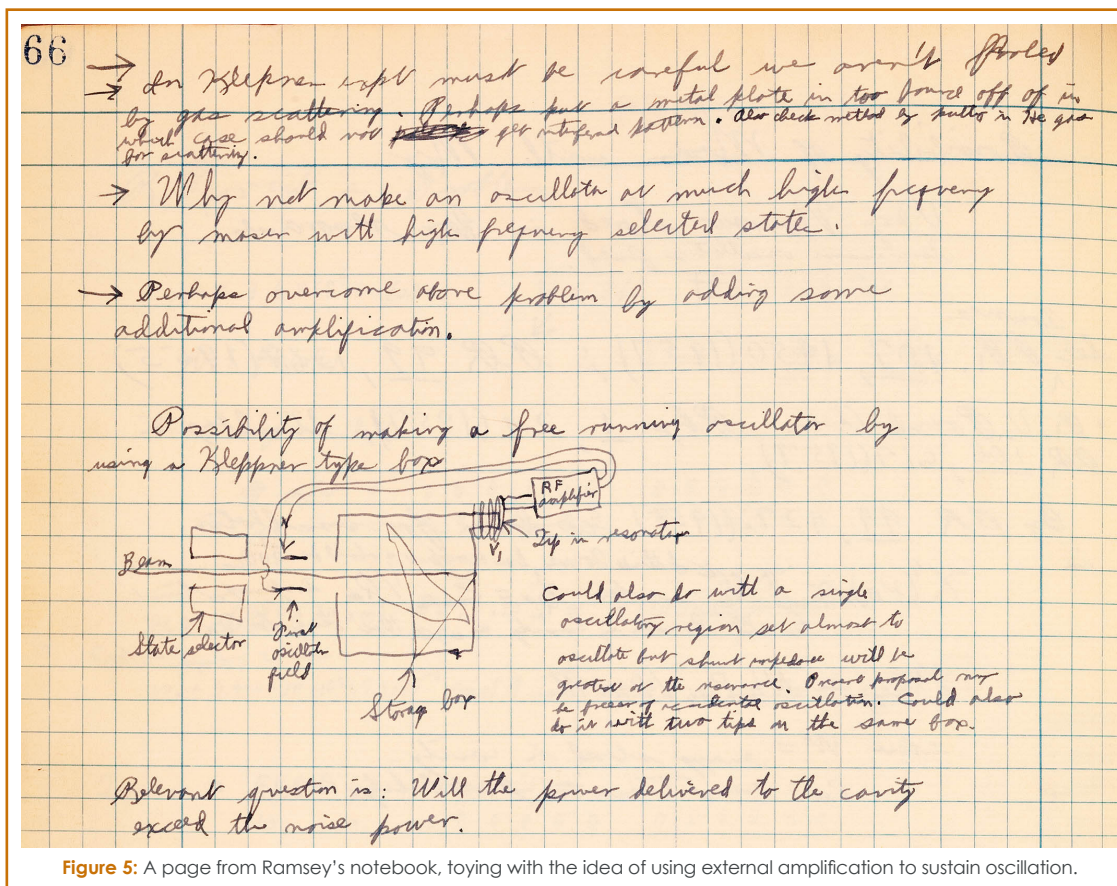 66
→ In Kleppner expt must be careful we aren't fooled
by gas scattering. Perhaps put a metal plate in too bounce off of in
which case should not get interfered pattern. Also check method by putting in He gas
for scattering.
→ Why not make an oscillator at much higher frequency
by maser with high frequency selected state.
→ Perhaps overcome above problem by adding some
additional amplification.
Possibility of making a free running oscillator by
using a Kleppner type box
RF
amplifier
V₁
Tip in resonator
Beam
State selector
First
oscillator
field
Storage box
Could also do with a single
oscillatory region set almost to
oscillate but shunt impedance will be
greatest at the resonance. Present proposal may
be freer of accidental oscillation. Could also
do it with two tips on the same box.
Relevant question is: Will the power delivered to the cavity
exceed the noise power.
Figure 5: A page from Ramsey's notebook, toying with the idea of using external amplification to sustain oscillation.